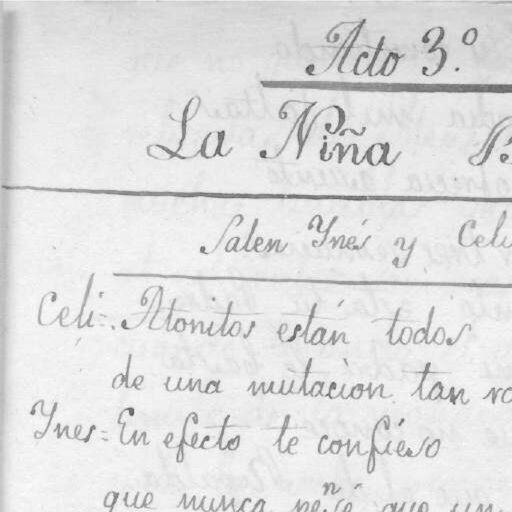 Acto 3.º
La Niña
Salen Ynés y Celi
Celi=. Atonitos están todos
de una mutaciòn tan
Ynes= En efecto te confiéso
que nunca pensé que un